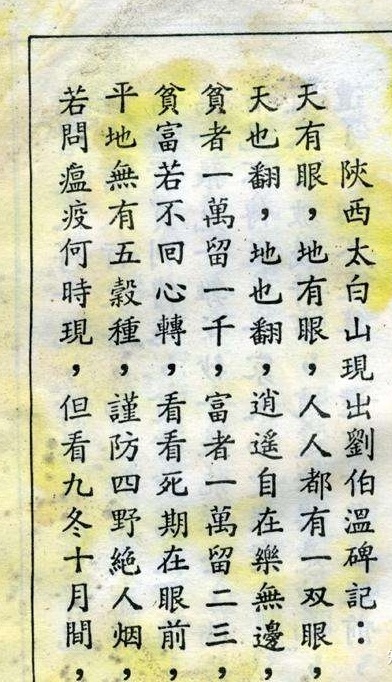 陝西太白山現出劉伯溫碑記：
天有眼，地有眼，人人都有一双眼，
天也翻，地也翻，逍遥自在樂無邊，
貧者一萬留一千，富者一萬留二三，
貧富若不囘心轉，看看死期在眼前，
平地無有五穀種，謹防四野絶人烟，
若問瘟疫何時現，但看九冬十月間，